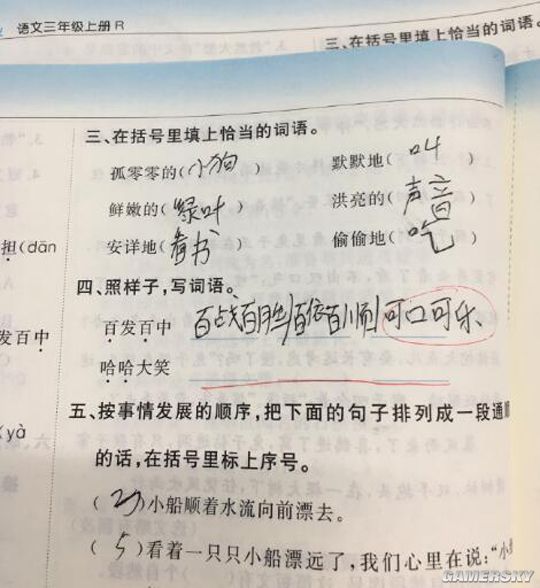 语文三年级上册R
三、在括号里填上恰当的词语。
三、在括号里填上恰当的词语。
孤零零的(小狗) 默默地(叫)
鲜嫩的(绿叶) 洪亮的(声音)
担(dān 安详地(看书) 偷偷地(吃)
四、照样子,写词语。
发百中 百发百中 百战百胜 百依百顺 可口可乐
哈哈大笑
五、按事情发展的顺序,把下面的句子排列成一段通顺
(yà 的话,在括号里标上序号。
( )小船顺着水流向前漂去。
(5)看着一只只小船漂远了,我们心里在说:“小
GAMERSKY